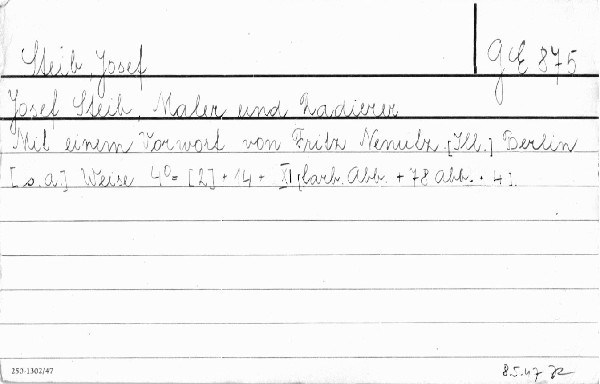 Steib, Josef
G E 875
Josef Steib, Maler und Radierer
Mit einem Vorwort von Fritz Nemitz. [Ill.] Berlin
[s.a.] Weise 4°= [2] + 14 + XI farb. Abb. + 78 Abb. + 4 S.
250-1302/47
8.5.47